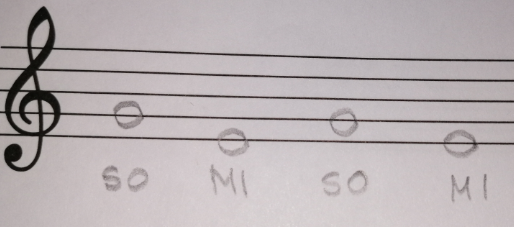 SO MI SO MI